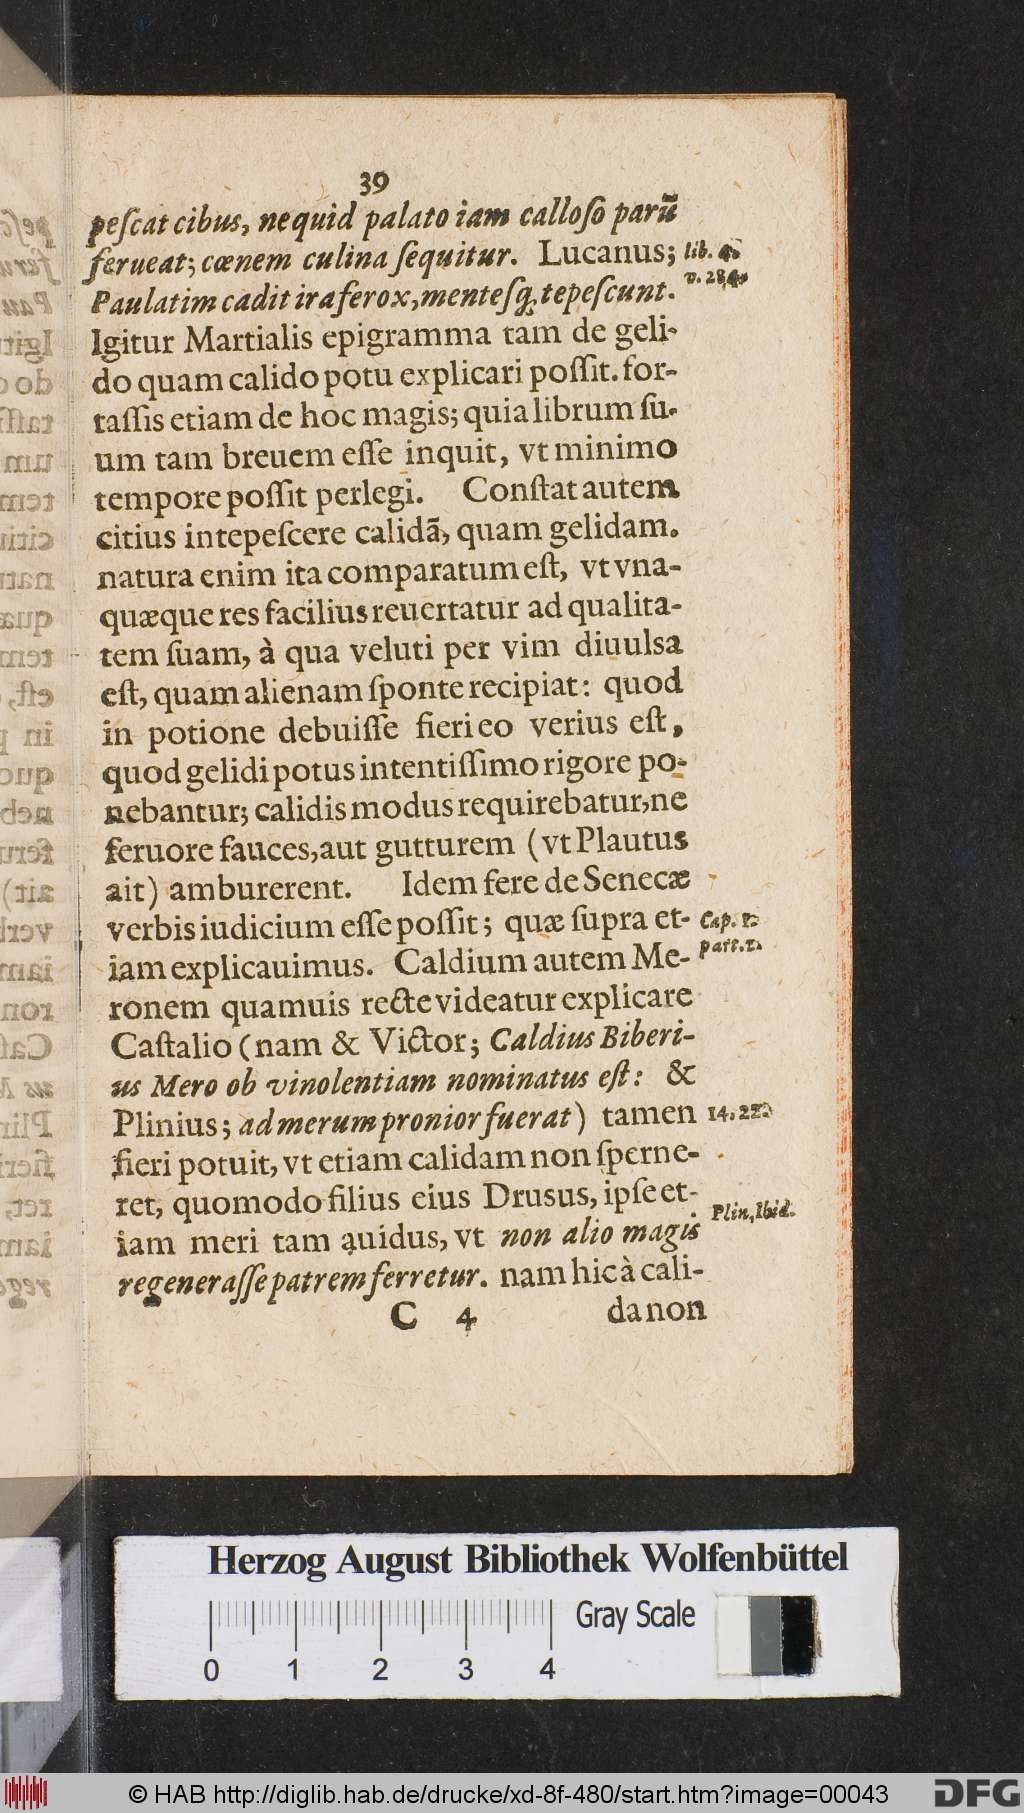 39
peſcat cibus, ne quid palato iam calloſo parū
ferueat; cœnem culina ſequitur. Lucanus; lib. 4.
v. 284.
Paulatim cadit ira ferox, menteſq; tepeſcunt.
Igitur Martialis epigramma tam de geli-
do quam calido potu explicari poſſit. for-
taſſis etiam de hoc magis; quia librum ſu-
um tam breuem eſſe inquit, vt minimo
tempore poſſit perlegi. Conſtat autem
citius intepeſcere calidā, quam gelidam.
natura enim ita comparatum eſt, vt vna-
quæque res facilius reuertatur ad qualita-
tem ſuam, à qua veluti per vim diuulsa
eſt, quam alienam ſponte recipiat: quod
in potione debuiſſe fieri eo verius eſt,
quod gelidi potus intentiſſimo rigore po-
nebantur; calidis modus requirebatur, ne
feruore fauces, aut gutturem (vt Plautus
ait) amburerent. Idem fere de Senecæ
verbis iudicium eſſe poſſit; quæ ſupra et- Cap. 1.
part. 1.
iam explicauimus. Caldium autem Me-
ronem quamuis recte videatur explicare
Caſtalio (nam & Victor; Caldius Biberi-
us Mero ob vinolentiam nominatus eſt: &
Plinius; ad merum pronior fuerat) tamen 14. 22.
fieri potuit, vt etiam calidam non ſperne-
ret, quomodo filius eius Drusus, ipſe et- Plin. Ibid.
iam meri tam auidus, vt non alio magis
regeneraſſe patrem ferretur. nam hic à cali-
C 4 da non
Herzog August Bibliothek Wolfenbüttel
Gray Scale
0 1 2 3 4
© HAB http://diglib.hab.de/drucke/xd-8f-480/start.htm?image=00043
DFG